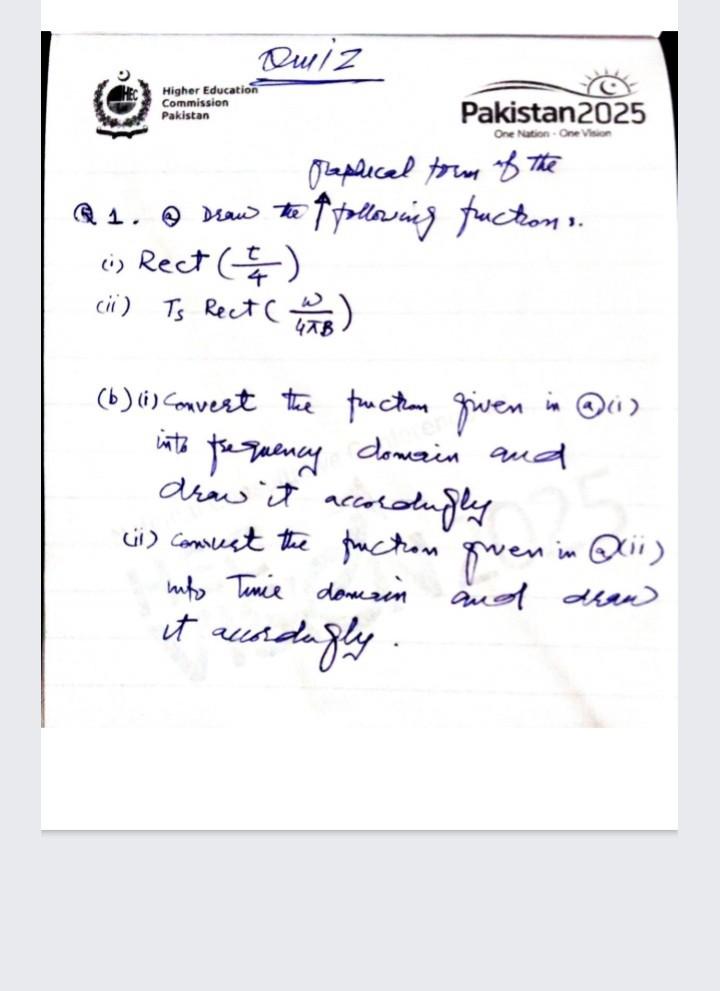 Quiz
Higher Education
Commission
Pakistan
HEC
Pakistan2025
One Nation - One Vision
graphical form of the
Q 1. (a) Draw the ↑ following functions.
(i) Rect (t/4)
(ii) Ts Rect (ω/4πB)
(b) (i) Convert the function given in (a)(i)
into frequency domain and
draw it accordingly
(ii) Convert the function given in (a)(ii)
into Time domain and draw
it accordingly.